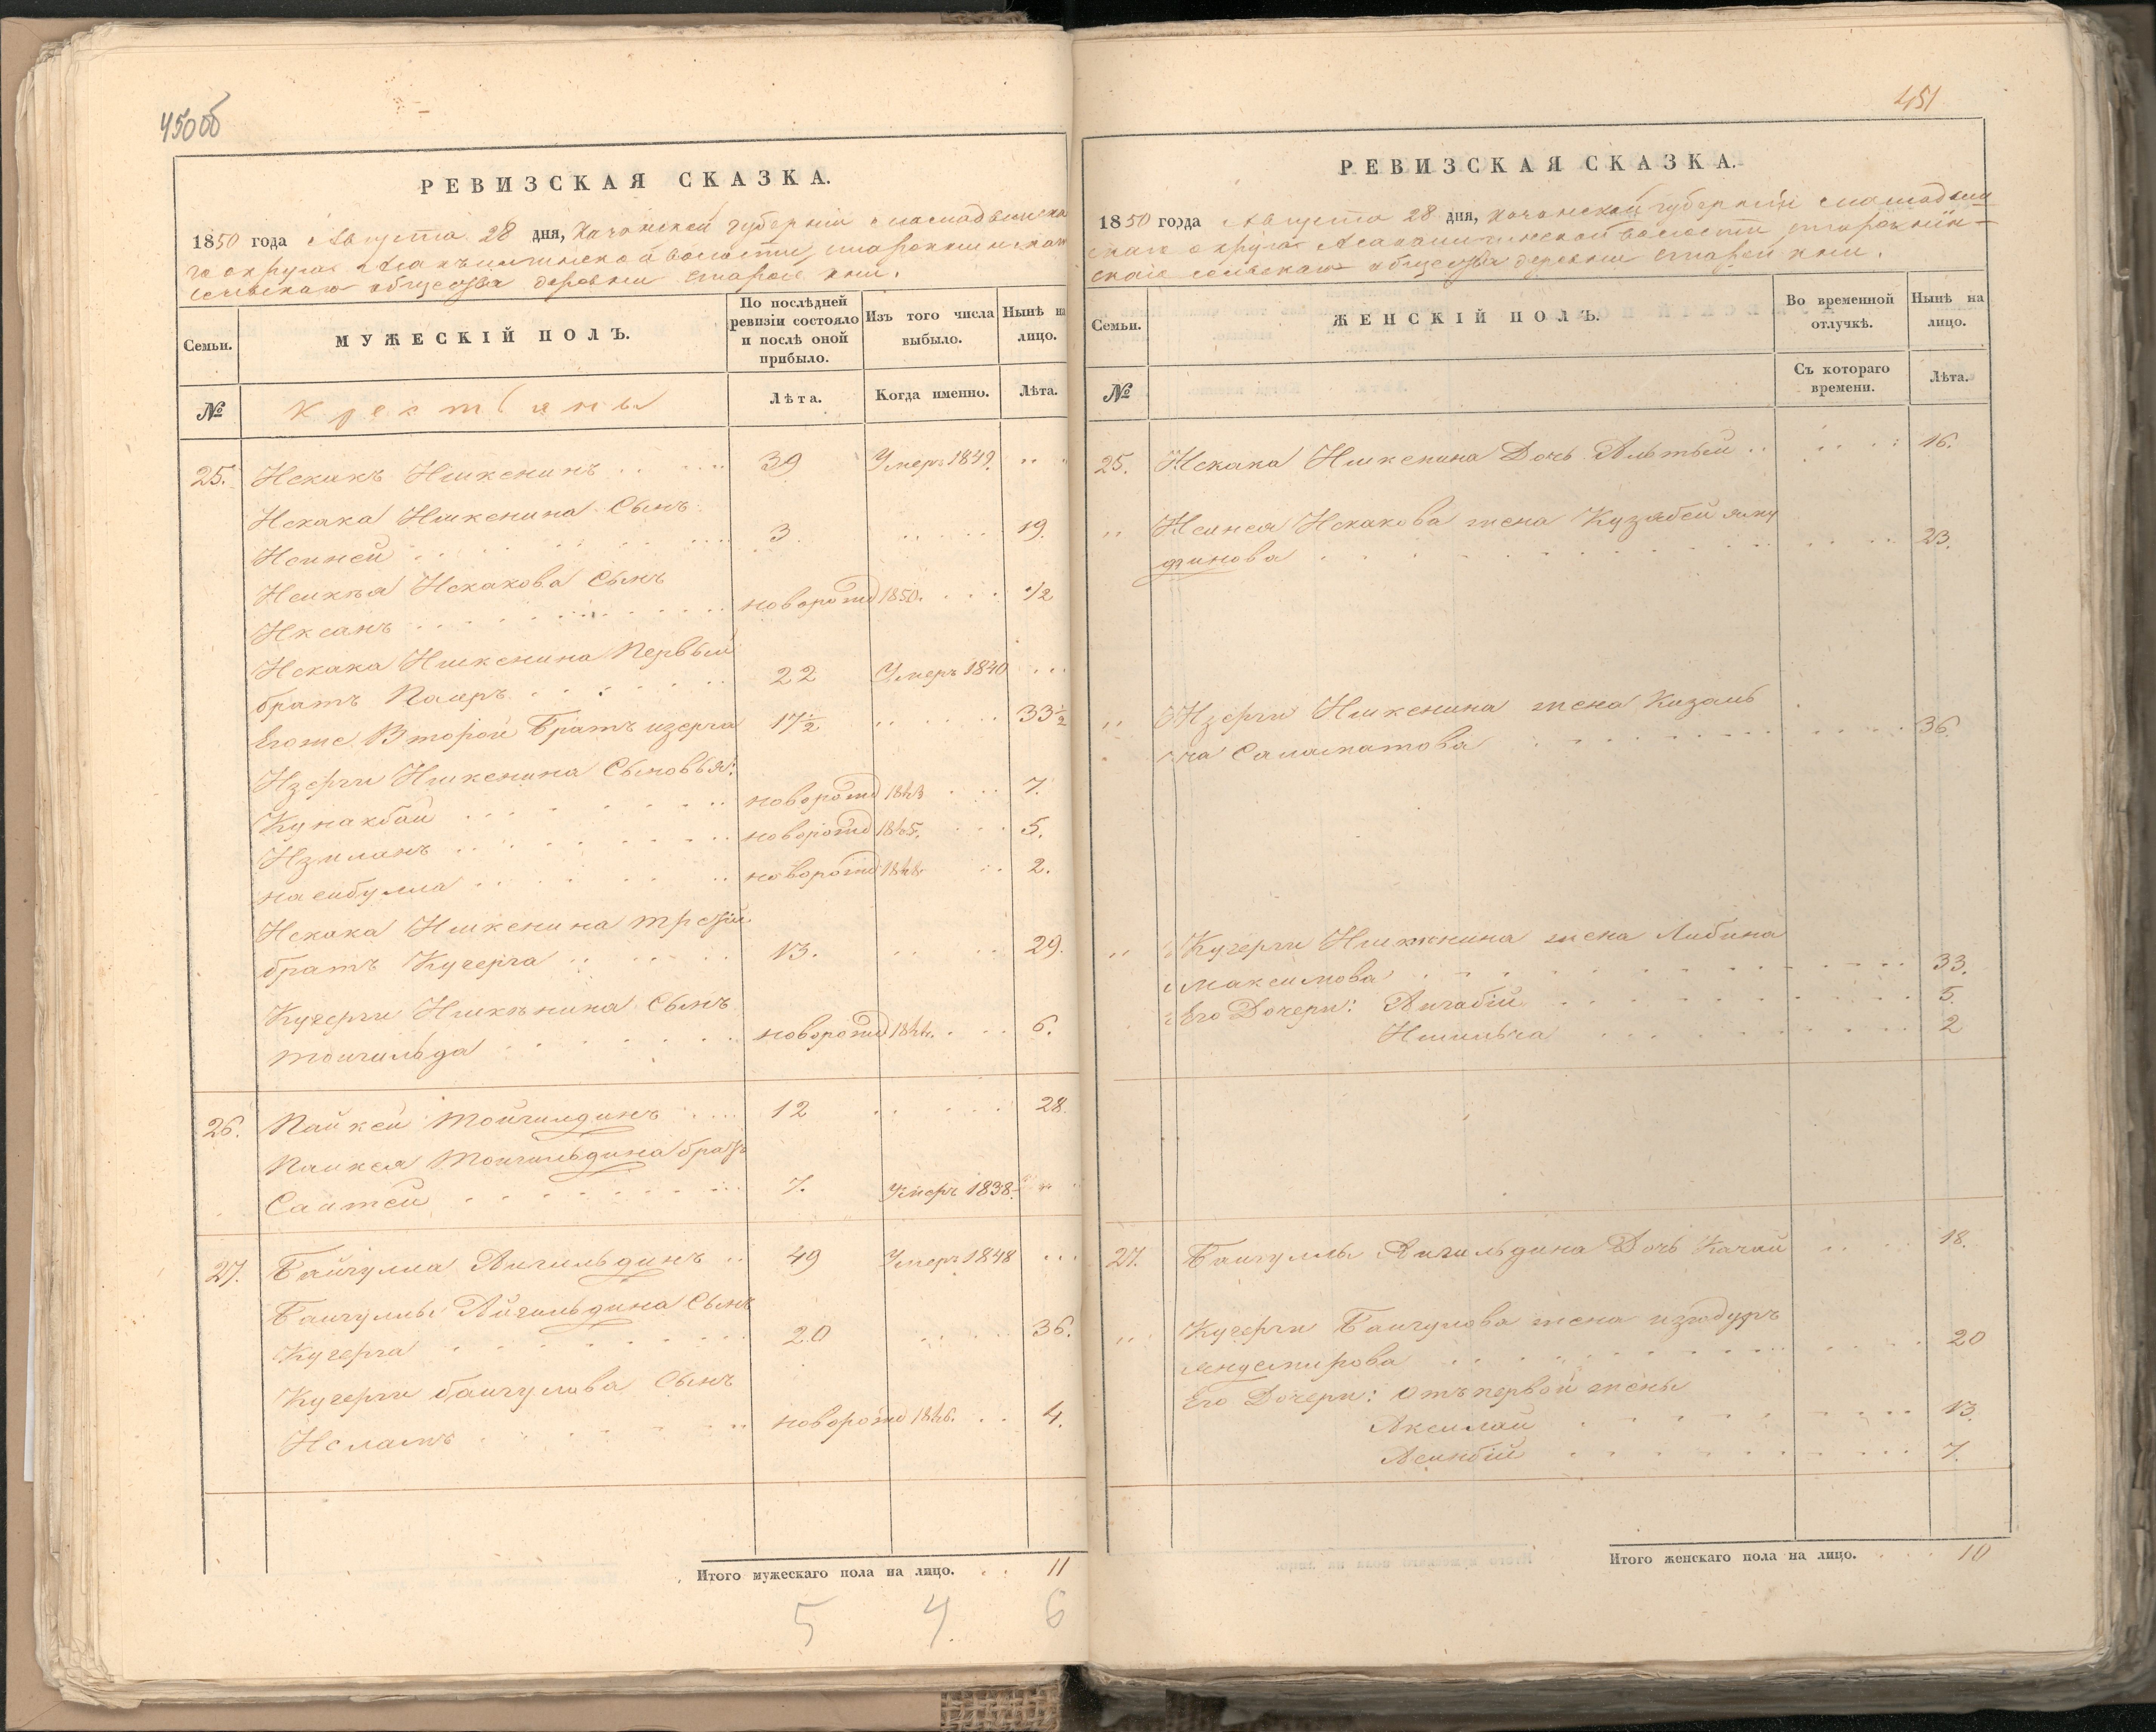 450об
РЕВИЗСКАЯ СКАЗКА.
1850 года Августа 28 дня, Казанской губернии Мамадышска
го округа волости,
сельскаго общества деревни Старой Юмьи.
Семьи.
МУЖЕСКІЙ ПОЛЪ.
По послѣдней ревизіи состояло и послѣ оной прибыло.
Изъ того числа выбыло.
Нынѣ на лицо.
№
Крестьяне
Лѣта.
Когда именно.
Лѣта.
25. Искакъ Ишкенинъ 39 Умеръ 1849.
Искака Ишкенина Сынъ
Исиней 3 19.
Искакова Сынъ
Иксанъ новорожд 1850. 1/2
Искака Ишкенина Первый
братъ 22 Умеръ 1840
Егоже Второй Братъ изерга 17 1/2 33 1/2
Изерги Ишкенина Сыновья:
Кунакбай новорожд 1843 7.
Измланъ новорожд 1845. 5.
насибулла новорожд 1848. 2.
Искака Ишкенина третій
братъ Кучерга 13. 29.
Кучерги Ишкенина Сынъ
тойгильда новорожд 1844. 6.
26. Пайкей Тойгилдинъ 12 28.
Пайкея Тойгильдина братъ
Саитей 7. Умеръ 1838.
27. Байгулла Айгильдинъ 49 Умеръ 1848
Байгуллы Айгильдина Сынъ
Кучерга 20 36.
Кучерги байгулова Сынъ
Исламъ новорожд 1846. 4.
Итого мужескаго пола на лицо. 11
5 4. 6
451
РЕВИЗСКАЯ СКАЗКА.
1850 года Августа 28 дня, Казанской губерніи Мамадыш
скаго округа волости,
скаго сельскаго общества деревни Старой Юмьи.
Семьи.
ЖЕНСКІЙ ПОЛЪ.
Во временной отлучкѣ.
Нынѣ на лицо.
№
Съ котораго времени.
Лѣта.
25. Искака Ишкенина Дочь Алтый 16.
Исинея Искакова жена Кузябей
динова 23.
Изерги Ишкенина жена
Саламатова 36.
Кучерги Ишкенина жена Либина
Максимова 33.
Его Дочери: Айгабій 5.
2
27. Байгуллы Айгильдина Дочь Качай 18.
Кучерги Байгулова жена
20
Его Дочери: Отъ первой жены
Аксилай 13.
Асинбій 7.
Итого женскаго пола на лицо. 10